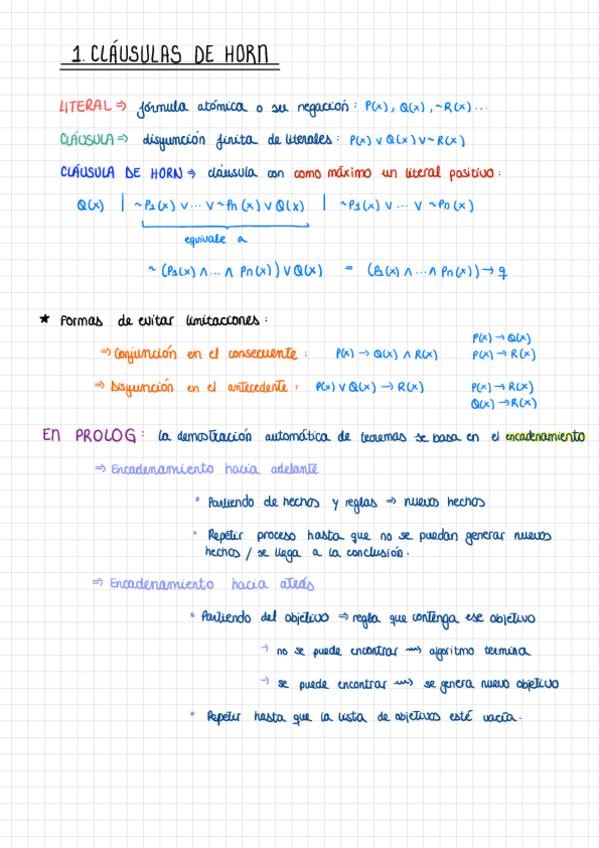 1. CLÁUSULAS DE HORN
LITERAL ⇒ fórmula atómica o su negación: P(x), Q(x), ~R(x)...
CLÁUSULA ⇒ disyunción finita de literales: P(x) ∨ Q(x) ∨ ~R(x)
CLÁUSULA DE HORN ⇒ cláusula con como máximo un literal positivo:
Q(x) | ~P1(x) ∨ ... ∨ ~Pn(x) ∨ Q(x) | ~P1(x) ∨ ... ∨ ~Pn(x)
equivale a
~(P1(x) ∧ ... ∧ Pn(x)) ∨ Q(x) = (P1(x) ∧ ... ∧ Pn(x)) → q
★ Formas de evitar limitaciones:
⇒ Conjunción en el consecuente: P(x) → Q(x) ∧ R(x)
P(x) → Q(x)
P(x) → R(x)
⇒ Disyunción en el antecedente: P(x) ∨ Q(x) → R(x)
P(x) → R(x)
Q(x) → R(x)
EN PROLOG: la demostración automática de teoremas se basa en el encadenamiento
⇒ Encadenamiento hacia adelante
• Partiendo de hechos y reglas ⇒ nuevos hechos
• Repetir proceso hasta que no se puedan generar nuevos
hechos / se llega a la conclusión.
⇒ Encadenamiento hacia atrás
• Partiendo del objetivo ⇒ regla que contenga ese objetivo
→ no se puede encontrar ⟿ algoritmo termina
→ se puede encontrar ⟿ se genera nuevo objetivo
• Repetir hasta que la lista de objetivos esté vacía.